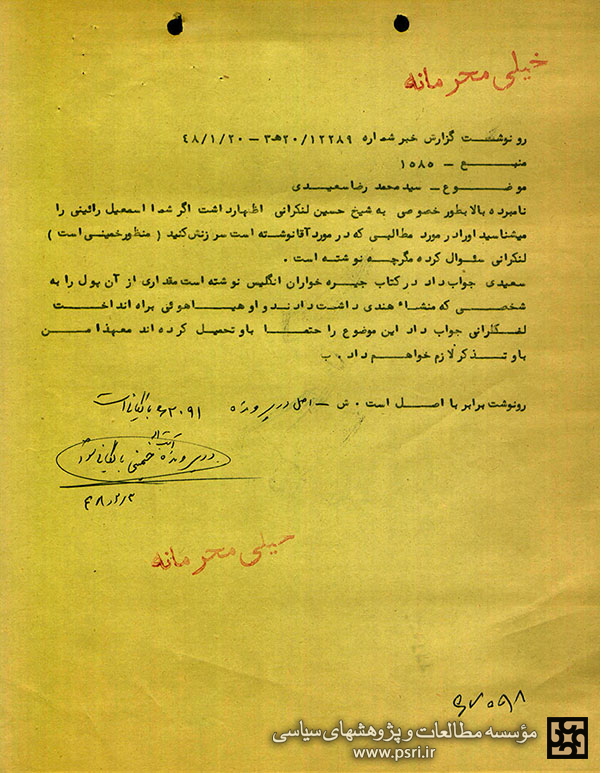 خیلی محرمانه
رونوشت گزارش خبر شماره ۲۰/۱۲۲۸۹ﻫ۳ – ۴۸/۱/۲۰
منبع – ۱۵۸۵
موضوع – سید محمد رضا سعیدی
نامبرده بالا بطور خصوصی به شیخ حسین لنکرانی اظهار داشت اگر شما اسمعیل رائینی را
میشناسید او را در مورد مطالبی که در مورد آقا نوشته است سرزنش کنید ( منظور خمینی است )
لنکرانی سئوال کرده مگر چه نوشته است .
سعیدی جواب داد در کتاب جیره خواران انگلیس نوشته است مقداری از آن پول را به
شخصی که منشاء هندی داشت دادند و او هیاهوئی براه انداخت
لنکرانی جواب داد این موضوع را حتما باو تحمیل کرده اند معهذا من
باو تذکر لازم خواهم داد . ب
رونوشت برابر با اصل است . ش – اصل در پرونده ۶۲۰۹۱ بایگانی است
در پرونده خمینی بایگانی شود
خیلی محرمانه
مؤسسه مطالعات و پژوهشهای سیاسی
www.psri.ir